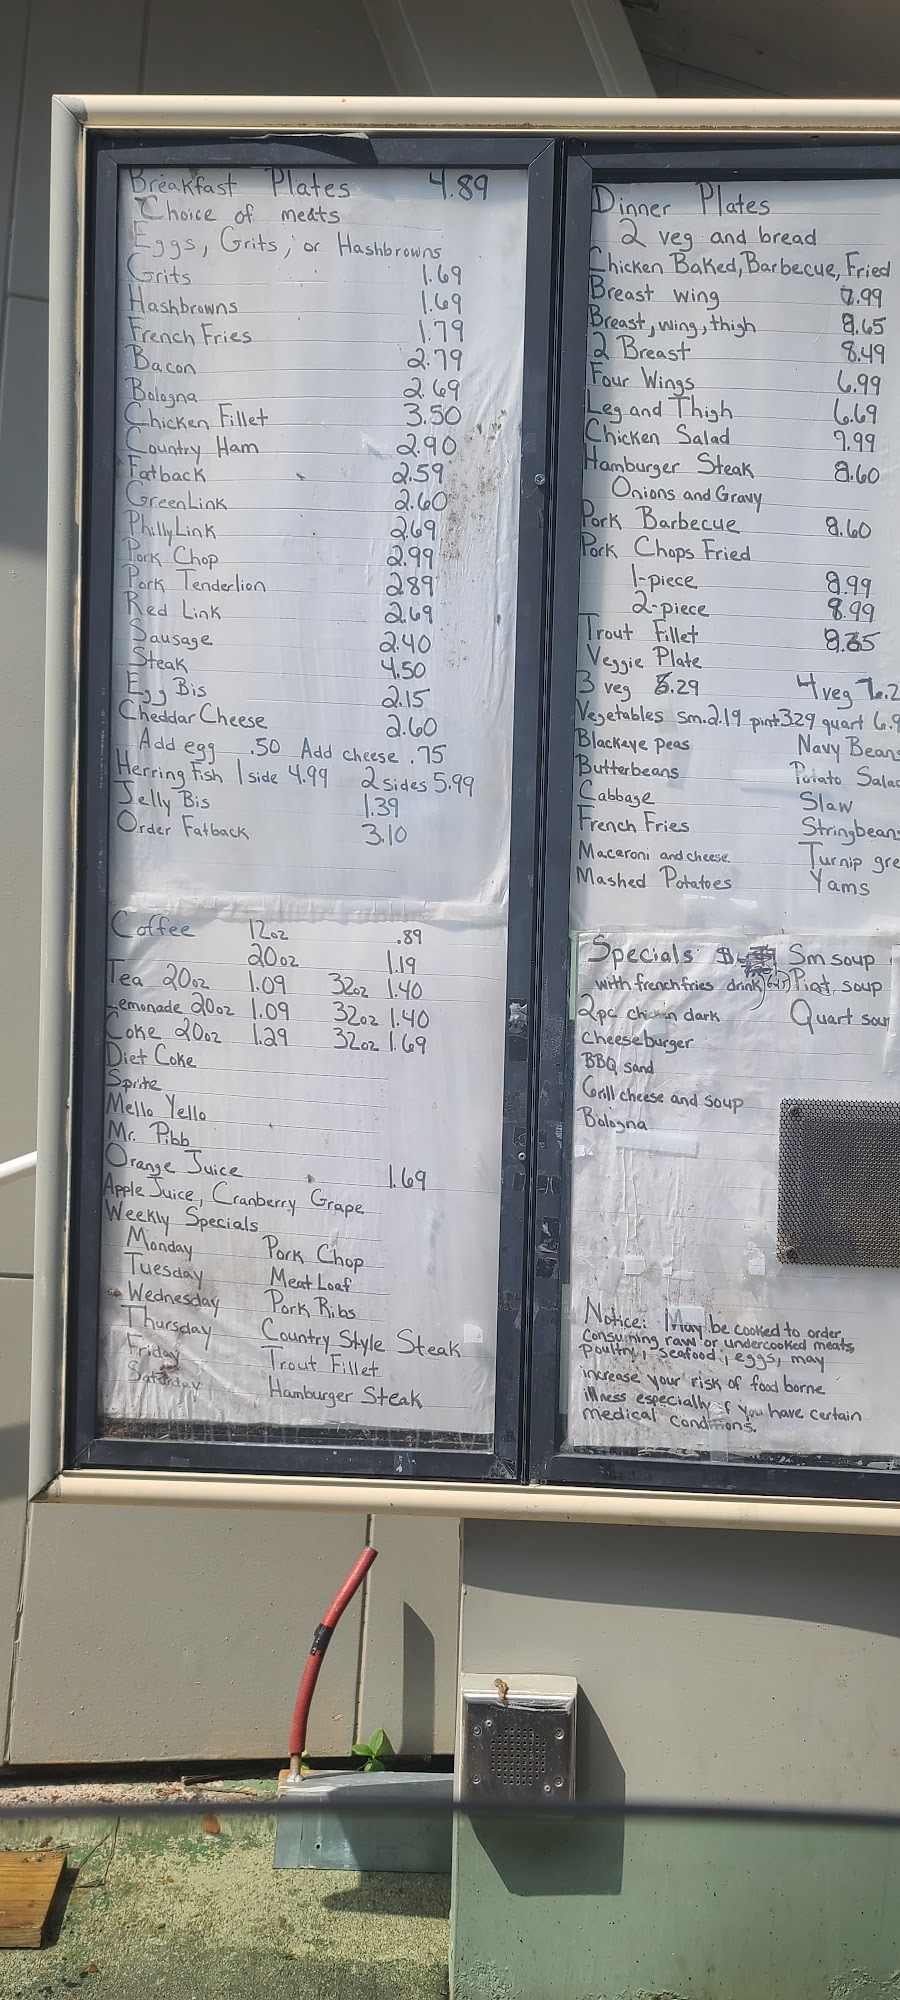 Breakfast Plates 4.89
Choice of meats
Eggs, Grits, or Hashbrowns
Grits 1.69
Hashbrowns 1.69
French Fries 1.79
Bacon 2.79
Bologna 2.69
Chicken Fillet 3.50
Country Ham 2.90
Fatback 2.59
GreenLink 2.60
PhillyLink 2.69
Pork Chop 2.99
Pork Tenderlion 2.89
Red Link 2.69
Sausage 2.40
Steak 4.50
Egg Bis 2.15
Cheddar Cheese 2.60
Add egg .50 Add cheese .75
Herring Fish 1 side 4.99 2 sides 5.99
Jelly Bis 1.39
Order Fatback 3.10
Coffee 12oz .89
20oz 1.19
Tea 20oz 1.09 32oz 1.40
Lemonade 20oz 1.09 32oz 1.40
Coke 20oz 1.29 32oz 1.69
Diet Coke
Sprite
Mello Yello
Mr. Pibb
Orange Juice 1.69
Apple Juice, Cranberry Grape
Weekly Specials
Monday Pork Chop
Tuesday Meat Loaf
Wednesday Pork Ribs
Thursday Country Style Steak
Friday Trout Fillet
Saturday Hamburger Steak
Dinner Plates
2 veg and bread
Chicken Baked, Barbecue, Fried
Breast wing 7.99
Breast, wing, thigh 8.65
2 Breast 8.49
Four Wings 6.99
Leg and Thigh 6.69
Chicken Salad 7.99
Hamburger Steak 8.60
Onions and Gravy
Pork Barbecue 8.60
Pork Chops Fried
1-piece
2-piece 8.99
Trout Fillet
Veggie Plate
3 veg 4 veg
Vegetables sm. 2.19 pint 3.29 quart
Blackeye peas Navy Beans
Butterbeans Potato
Cabbage Slaw
French Fries Stringbeans
Macaroni and cheese Turnip
Mashed Potatoes Yams
Specials Sm soup
with french fries drink soup
2pc chicken dark Quart
Cheeseburger
BBQ sand
Grill cheese and soup
Bologna
Notice: May be cooked to order
Consuming raw or undercooked meats,
poultry, seafood, eggs, may
increase your risk of food borne
illness especially if you have certain
medical conditions.